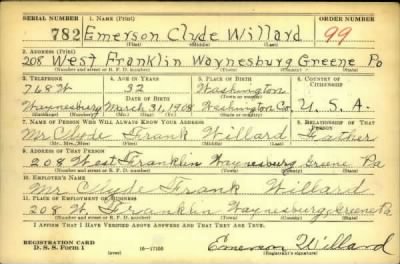 SERIAL NUMBER 1. NAME (Print) ORDER NUMBER
782 Emerson Clyde Willard 99
(First) (Middle) (Last)
2. ADDRESS (Print)
208 West Franklin Waynesburg Greene Pa
(Number and street or R. F. D. number) (Town) (County) (State)
3. TELEPHONE 4. AGE IN YEARS 5. PLACE OF BIRTH 6. COUNTRY OF CITIZENSHIP
768W 32 Washington
DATE OF BIRTH (Town or county)
Waynesburg March 31, 1908 Washington Co. U. S. A.
(Exchange) (Number) (Mo.) (Day) (Yr.) (State or country)
7. NAME OF PERSON WHO WILL ALWAYS KNOW YOUR ADDRESS 8. RELATIONSHIP OF THAT PERSON
Mr Clyde Frank Willard Father
(Mr., Mrs., Miss) (First) (Middle) (Last)
9. ADDRESS OF THAT PERSON
208 West Franklin Waynesburg Greene Pa
(Number and street or R. F. D. number) (Town) (County) (State)
10. EMPLOYER'S NAME
Mr Clyde Frank Willard
11. PLACE OF EMPLOYMENT OR BUSINESS
208 W Franklin Waynesburg Greene Pa
(Number and street or R. F. D. number) (Town) (County) (State)
I AFFIRM THAT I HAVE VERIFIED ABOVE ANSWERS AND THAT THEY ARE TRUE.
REGISTRATION CARD
D. S. S. Form 1 (over) 16-17105 Emerson Willard
(Registrant's signature)